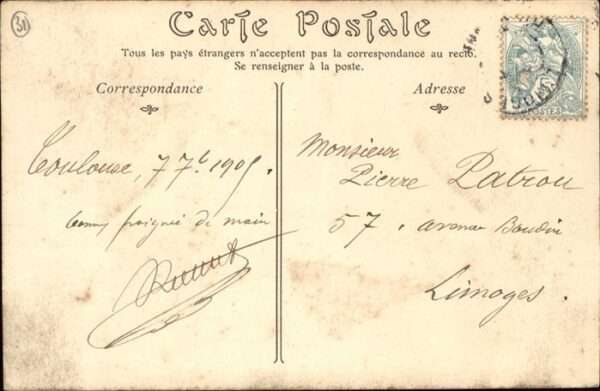 31
Carte Postale
Tous les pays étrangers n'acceptent pas la correspondance au recto.
Se renseigner à la poste.
Correspondance
Adresse
POSTES
Toulouse, 7 7bre 1905.
poignée de main
Monsieur
Pierre Patrou
57, avenue Baudin
Limoges.